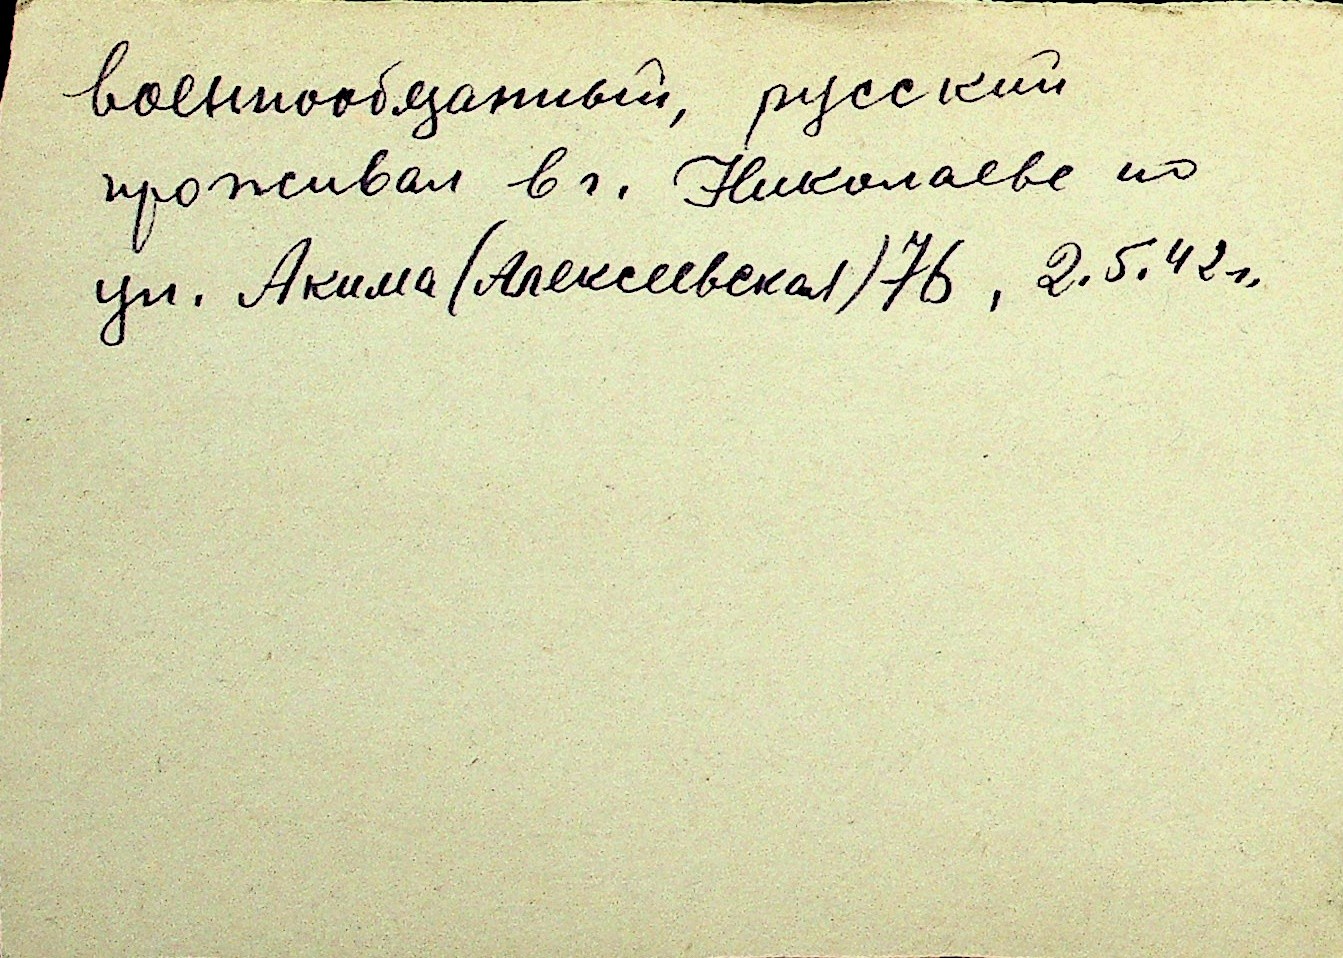 военнообязанный, русский
проживал в г. Николаеве по
ул. Акима (Алексеевская) 76, 2.5.42 г.